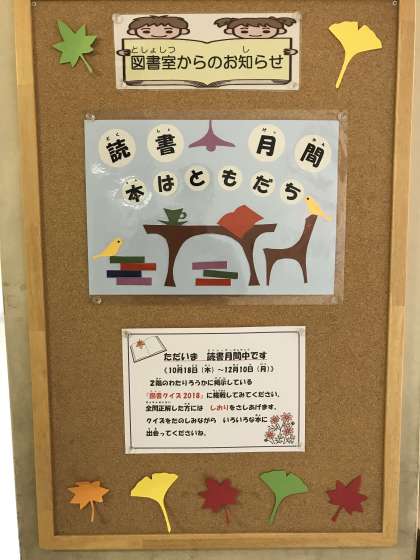 としょしつ し
図書室からのお知らせ
どく しょ げっ かん
読書月間
本はともだち
ただいま 読書月間中です
（10月18日（木）～12月10日（月））
2階のわたりろうかに掲示している
「図書クイズ2018」に挑戦してみてください。
全問正解した方には しおりをさしあげます。
クイズをたのしみながら いろいろな本に
出会ってくださいね。